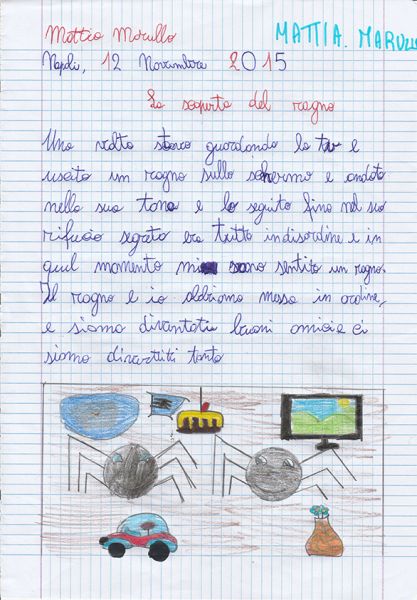 Mattia Marullo
MATTIA. MARULL
Napoli, 12 Novembre 2015
La scoperta del ragno
Una volta stavo guardando la tv e
uscito un ragno sullo schermo e andato
nella sua tana e lo seguito fino nel suo
rifucio segreto era tutto indisordine e in
quel momento mi sono sentito un ragno.
Il ragno e io abbiamo messo in ordine,
e siamo diventati buoni amici e ci
siamo divertiti tanto